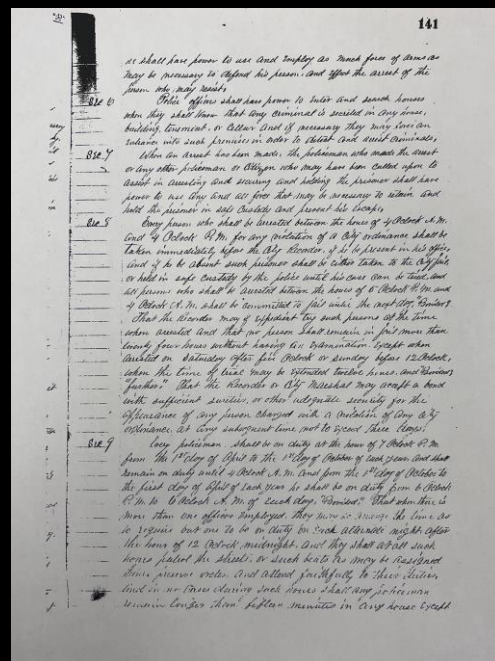 141
he shall have power to use and employ as much force of arms as
may be necessary to defend his person, and effect the arrest of the
person who may resist.
Sec 6 Police officers shall have power to enter and search houses
when they shall know that any criminal is secreted in any house,
building, tenement, or cellar and if necessary they may force an
entrance into such premises in order to detect and arrest criminals.
Sec. 7 When an arrest has been made, the policeman who made the arrest
or any other policeman or Citizen who may have been called upon to
assist in arresting and securing and holding the prisoner shall have
power to use any and all force that may be necessary to retain and
hold the prisoner in safe custody and prevent his escape.
Sec. 8 Every person who shall be arrested between the hours of 4 Oclock A.M.
and 4 Oclock P.M. for any violation of a City ordinance shall be
taken immediately before the City Recorder, if he be present in his office,
and if he be absent such prisoner shall be either taken to the City jail
or held in safe custody by the police until his case can be tried, and
all persons who shall be arrested between the hours of 5 Oclock P.M. and
4 Oclock A.M. shall be committed to jail until the next day, "Provided
That the Recorder may if expedient try such persons at the time
when arrested and that no person shall remain in jail more than
twenty four hours without having an examination Except when
arrested on Saturday after five Oclock or Sunday before 12 Oclock,
when the time of trial may be extended twelve hours, and "Provided
"further" That the Recorder or City Marshal may accept a bond
with sufficient sureties, or other adequate security for the
appearance of any person charged with a violation of any City
ordinance at any subsequent time not to exceed three days.
Sec 9 Every policeman shall be on duty at the hour of 7 Oclock P.M.
from the 1st day of April to the 1st day of October of each year and shall
remain on duty until 4 Oclock A.M. and from the 1st day of October to
the first day of April of each year he shall be on duty from 6 Oclock
P.M. to 6 Oclock A.M. of each day. "Provided," That when there is
more than one officer employed, they may so arrange the time as
to require but one to be on duty on each alternate night after
the hour of 12 Oclock midnight, and they shall at all such
hours patrol the streets, or such beats as may be assigned
them, preserve order, and attend faithfully to their duties,
and in no case during such hours shall any policeman
remain longer than fifteen minutes in any house Except